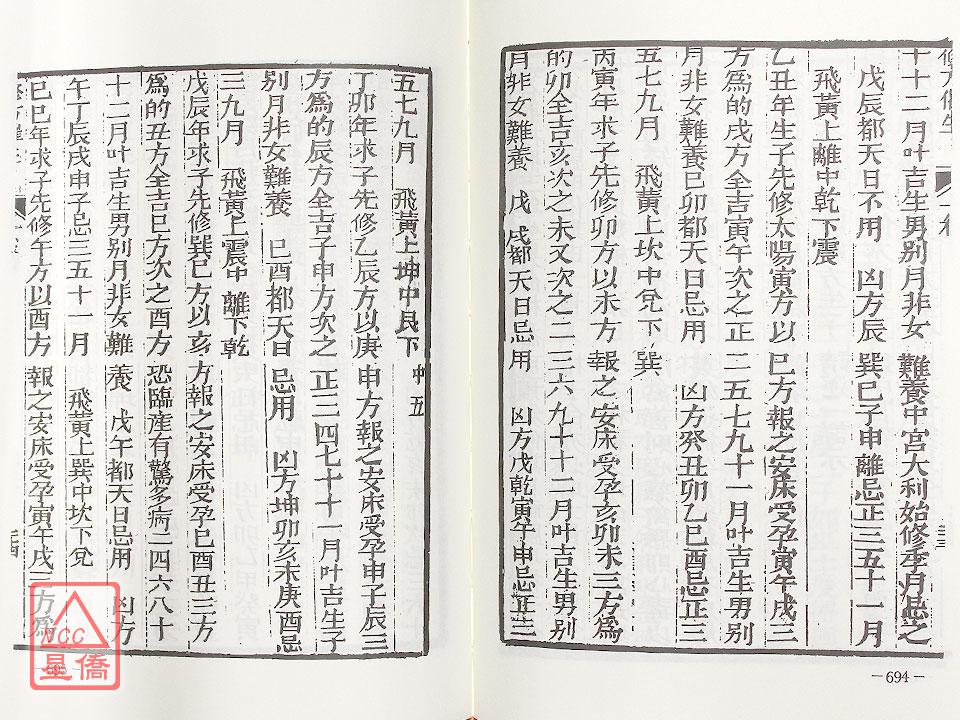 十十二月叶吉生男别月非女難養中宮大利始修季月忌之
戊辰都天日不用 凶方辰巽巳子申離忌正三五十一月
飛黃上離中乾下震
乙丑年生子先修太陽寅方以巳方報之安床受孕寅午戌三
方為的戌方全吉寅午次之正二五七九十一月叶吉生男别
月非女難養巳卯都天日忌用 凶方癸丑卯乙巳酉忌正三
五七九月 飛黃上坎中兌下巽
丙寅年求子先修卯方以未方報之安床受孕亥卯未三方為
的卯全吉亥次之未又次之二三六九十十二月叶吉生男别
月非女難養 戊戌都天日忌用 凶方戊乾寅午申忌正三
三三
－694－
五七九月 飛黃上坤中艮下中五
丁卯年求子先修乙辰方以庚申方報之安床受孕申子辰三
方為的辰方全吉子申方次之正二四七十十一月叶吉生子
别月非女難養 巳酉都天日忌用 凶方坤卯亥未庚酉忌
三九月 飛黃上震中離下乾
戊辰年求子先修巽巳方以亥方報之安床受孕巳酉丑三方
為的丑方全吉巳方次之酉方恐臨產有驚多病二四六八十
十二月叶吉生男别月非女難養 戊午都天日忌用 凶方
午丁辰戌申子忌三五十一月 飛黃上巽中坎下兌
巳巳年求子先修午方以酉方報之安床受孕寅午戌三方為
NCC
星僑